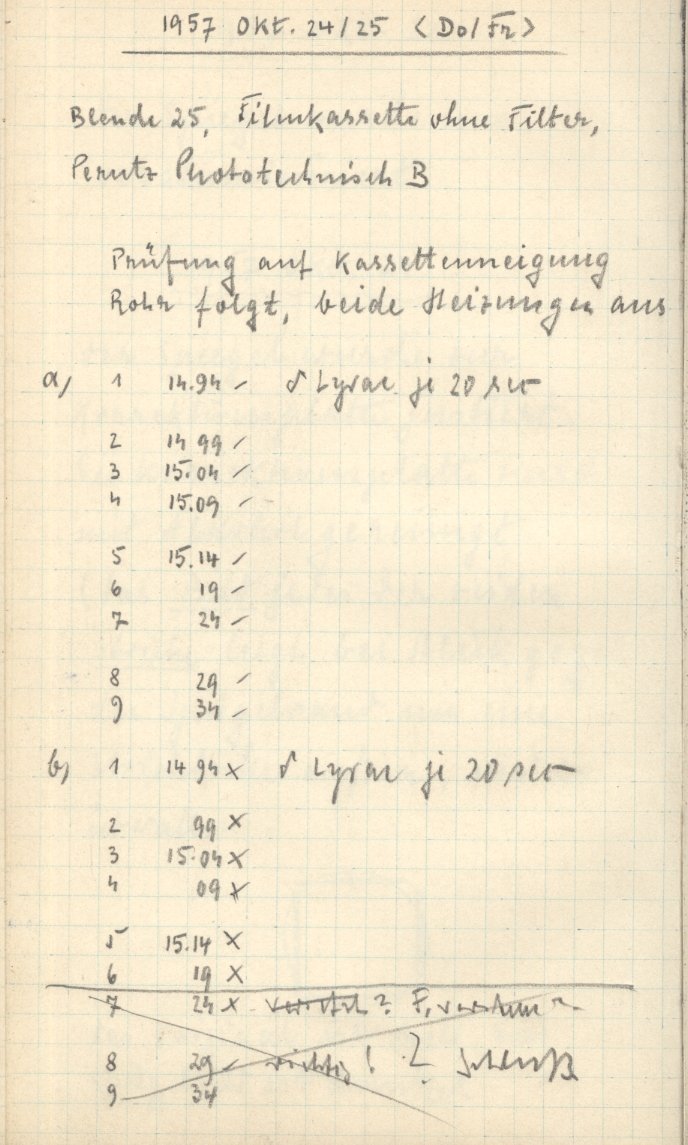 1957 OKT. 24/25 <Do/Fr>
Blende 25, Filmkassette ohne Filter,
Perutz Phototechnisch B
Prüfung auf Kassettenneigung
Rohr folgt, beide Heizungen aus
a) 1 14.94 – δ Lyrae je 20 sec
2 14 99 –
3 15.04 –
4 15.09 –
5 15.14 –
6 19 –
7 24 –
8 29 –
9 34 –
b) 1 14 94 x δ Lyrae je 20 sec
2 99 x
3 15.04 x
4 09 x
5 15.14 x
6 19 x
7 24 x ? F.
8 29 – richtig! ? Schluß
9 34